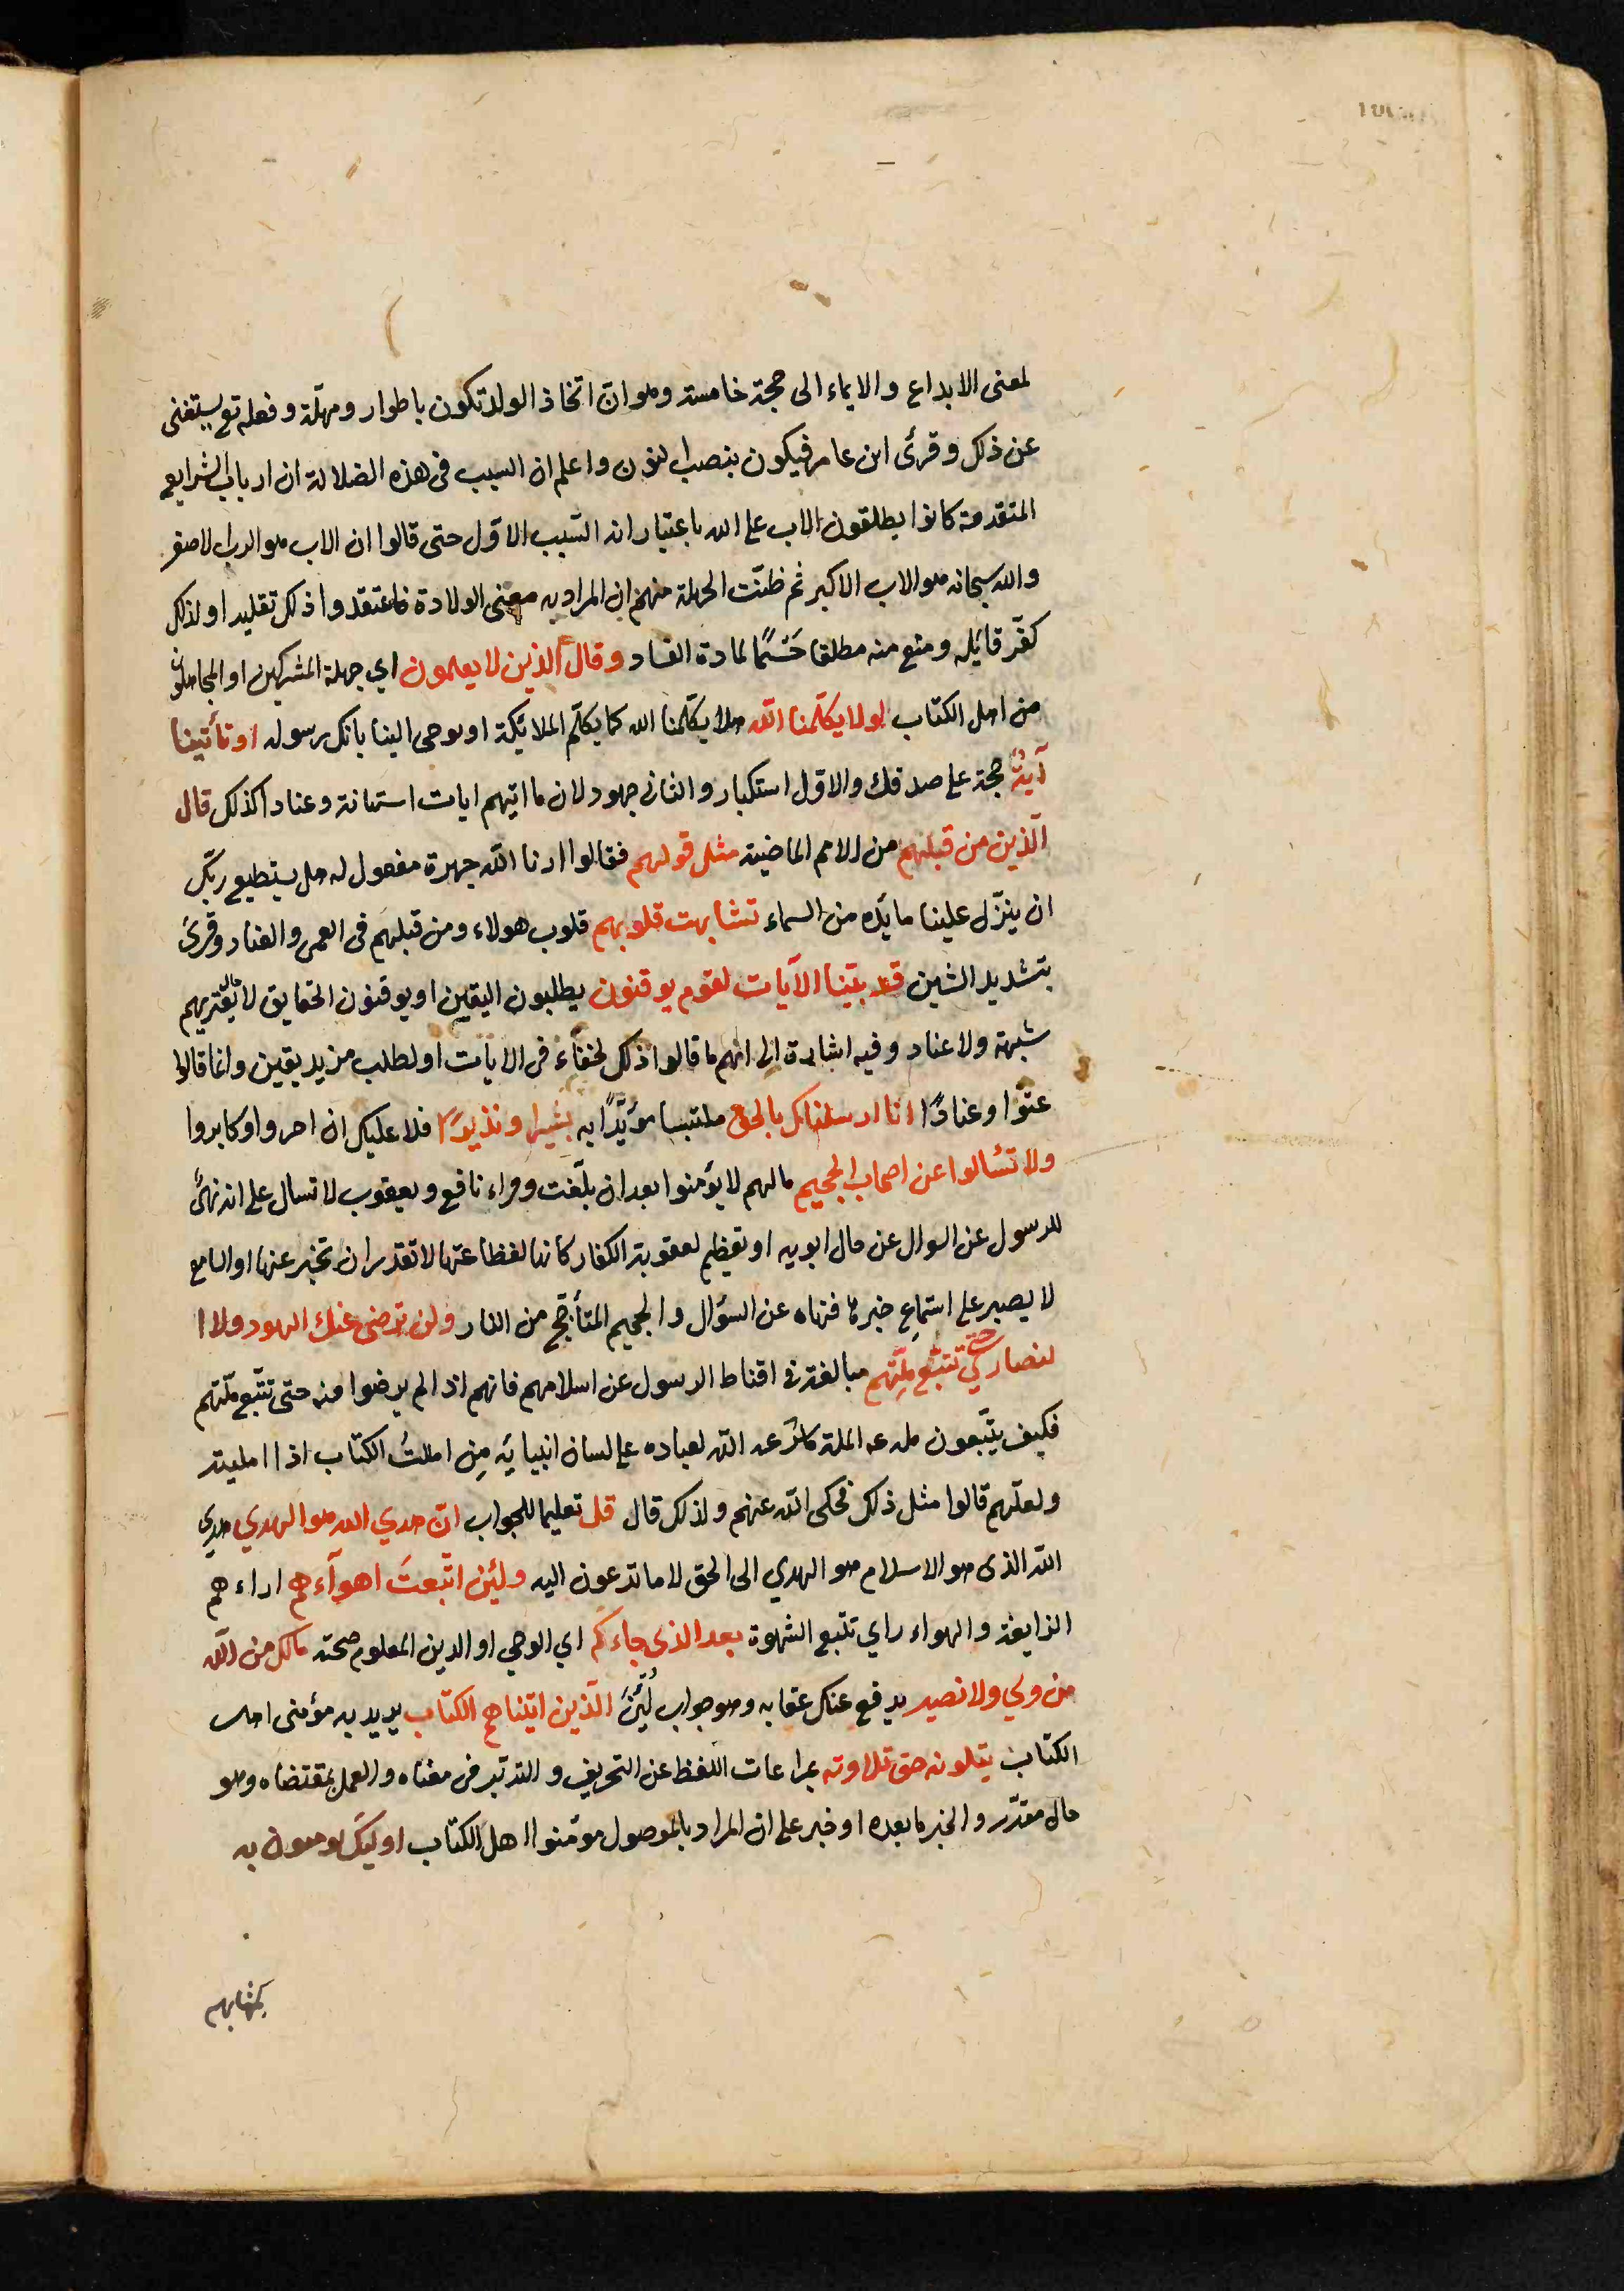 لمعنى الابداع والايماء الى حجة خامسة وهو ان اتخاذ الولد تكون باطوار ومهلة وفعله تع يستغنى
عن ذلك وقرئ ابن عامر فيكون بنصب النون واعلم ان السبب فى هذه الضلالة ان ارباب الشرايع
المتقدمة كانوا يطلقون الاب على الله باعتبار انه السّبب الاوّل حتى قالوا ان الاب هو الرب الاصغر
والله سبحانه هو الاب الاكبر ثم ظنّت الجهلة منهم ان المراد به معنى الولادة فاعتقدوا ذلك تقليدا ولذلك
كفّر قائله ومنع منه مطلقا حَسْمًا لمادة الفساد وقال الذين لا يعلمون اي جهلة المشركين او المتجاهلون
من اهل الكتاب لولا يكلّمنا الله هلا يكلّمنا الله كما يكلّم الملائكة او يوحى الينا بانك رسوله او تأتينا
آيةٌ حجة على صدقك والاوّل استكبار والثانى جهود لان ما اتيهم ايات استهانة وعنادا كذلك قال
الّذين من قبلهم من الامم الماضية مثل قولهم فقالوا ارنا الله جهرة مفعول له هل يستطيع ربّك
ان ينزّل علينا مائدة من السماء تشابهت قلوبهم قلوب هولاء ومن قبلهم فى العمى والعناد وقرئ
بتشديد الشين قد بيّنا الآيات لقوم يوقنون يطلبون اليقين او يوقنون الحقايق لا يعتريهم
شبهة ولا عناد وفيه اشارة الى انهم ما قالوا ذلك لخفاء فى الايات او لطلب مزيد يقين وانما قالوا
عتوّا وعنادًا انا ارسلناك بالحق ملتبسا مؤيّدًا به بشيرا ونذيرًا فلا عليك ان اصروا وكابروا
ولا تسٔالوا عن اصحاب الجحيم مالهم لا يؤمنوا بعد ان بلّغت وقراء نافع ويعقوب لا تسأل على انه نهىٌ
للرسول عن السوال عن حال ابويه او تعظيم لعقوبة الكفار كانها لفظاعتها لا تقدر ان تخبر عنها او السامع
لا يصبر على استماع خبرها فنهاه عن السؤال والجحيم المتأجّج من النار ولن ترضى عنك اليهود ولا ا
لنصارى حتى تتّبع ملّتهم مبالغة فى اقناط الرسول عن اسلامهم فانهم اذا لم يرضوا منه حتى تتّبع ملّتهم
فكيف يتّبعون ملته الملة ماشرعه الله لعباده على لسان انبيائه مِن امللتُ الكتاب اذا امليته
ولعلّهم قالوا مثل ذلك فحكى الله عنهم ولذلك قال قل تعليما للجواب انّ هدي الله هو الهدي هدى
الله الذى هو الاسلام هو الهدي الى الحق لا ما تدعون اليه ولئن اتّبعتَ اهوآءهم اراءهم
الزايغة والهواء راي تتبع الشهوة بعد الذى جاءكم اي الوحي او الدين المعلوم صحته مالك من الله
من ولي ولا نصير يدفع عنك عقابه وهو جواب لَئِن الّذين اتيناهم الكتاب يريد به مؤمنى اهل
الكتاب يتلونه حق تلاوته بمراعات اللفظ عن التحريف والتدبّر فى معناه والعمل بمقتضاه وهو
حال مقدّر والخبر ما بعده او خبر على ان المراد بالموصول مؤمنوا اهل الكتاب اوليك يومنون به
بكتابهم